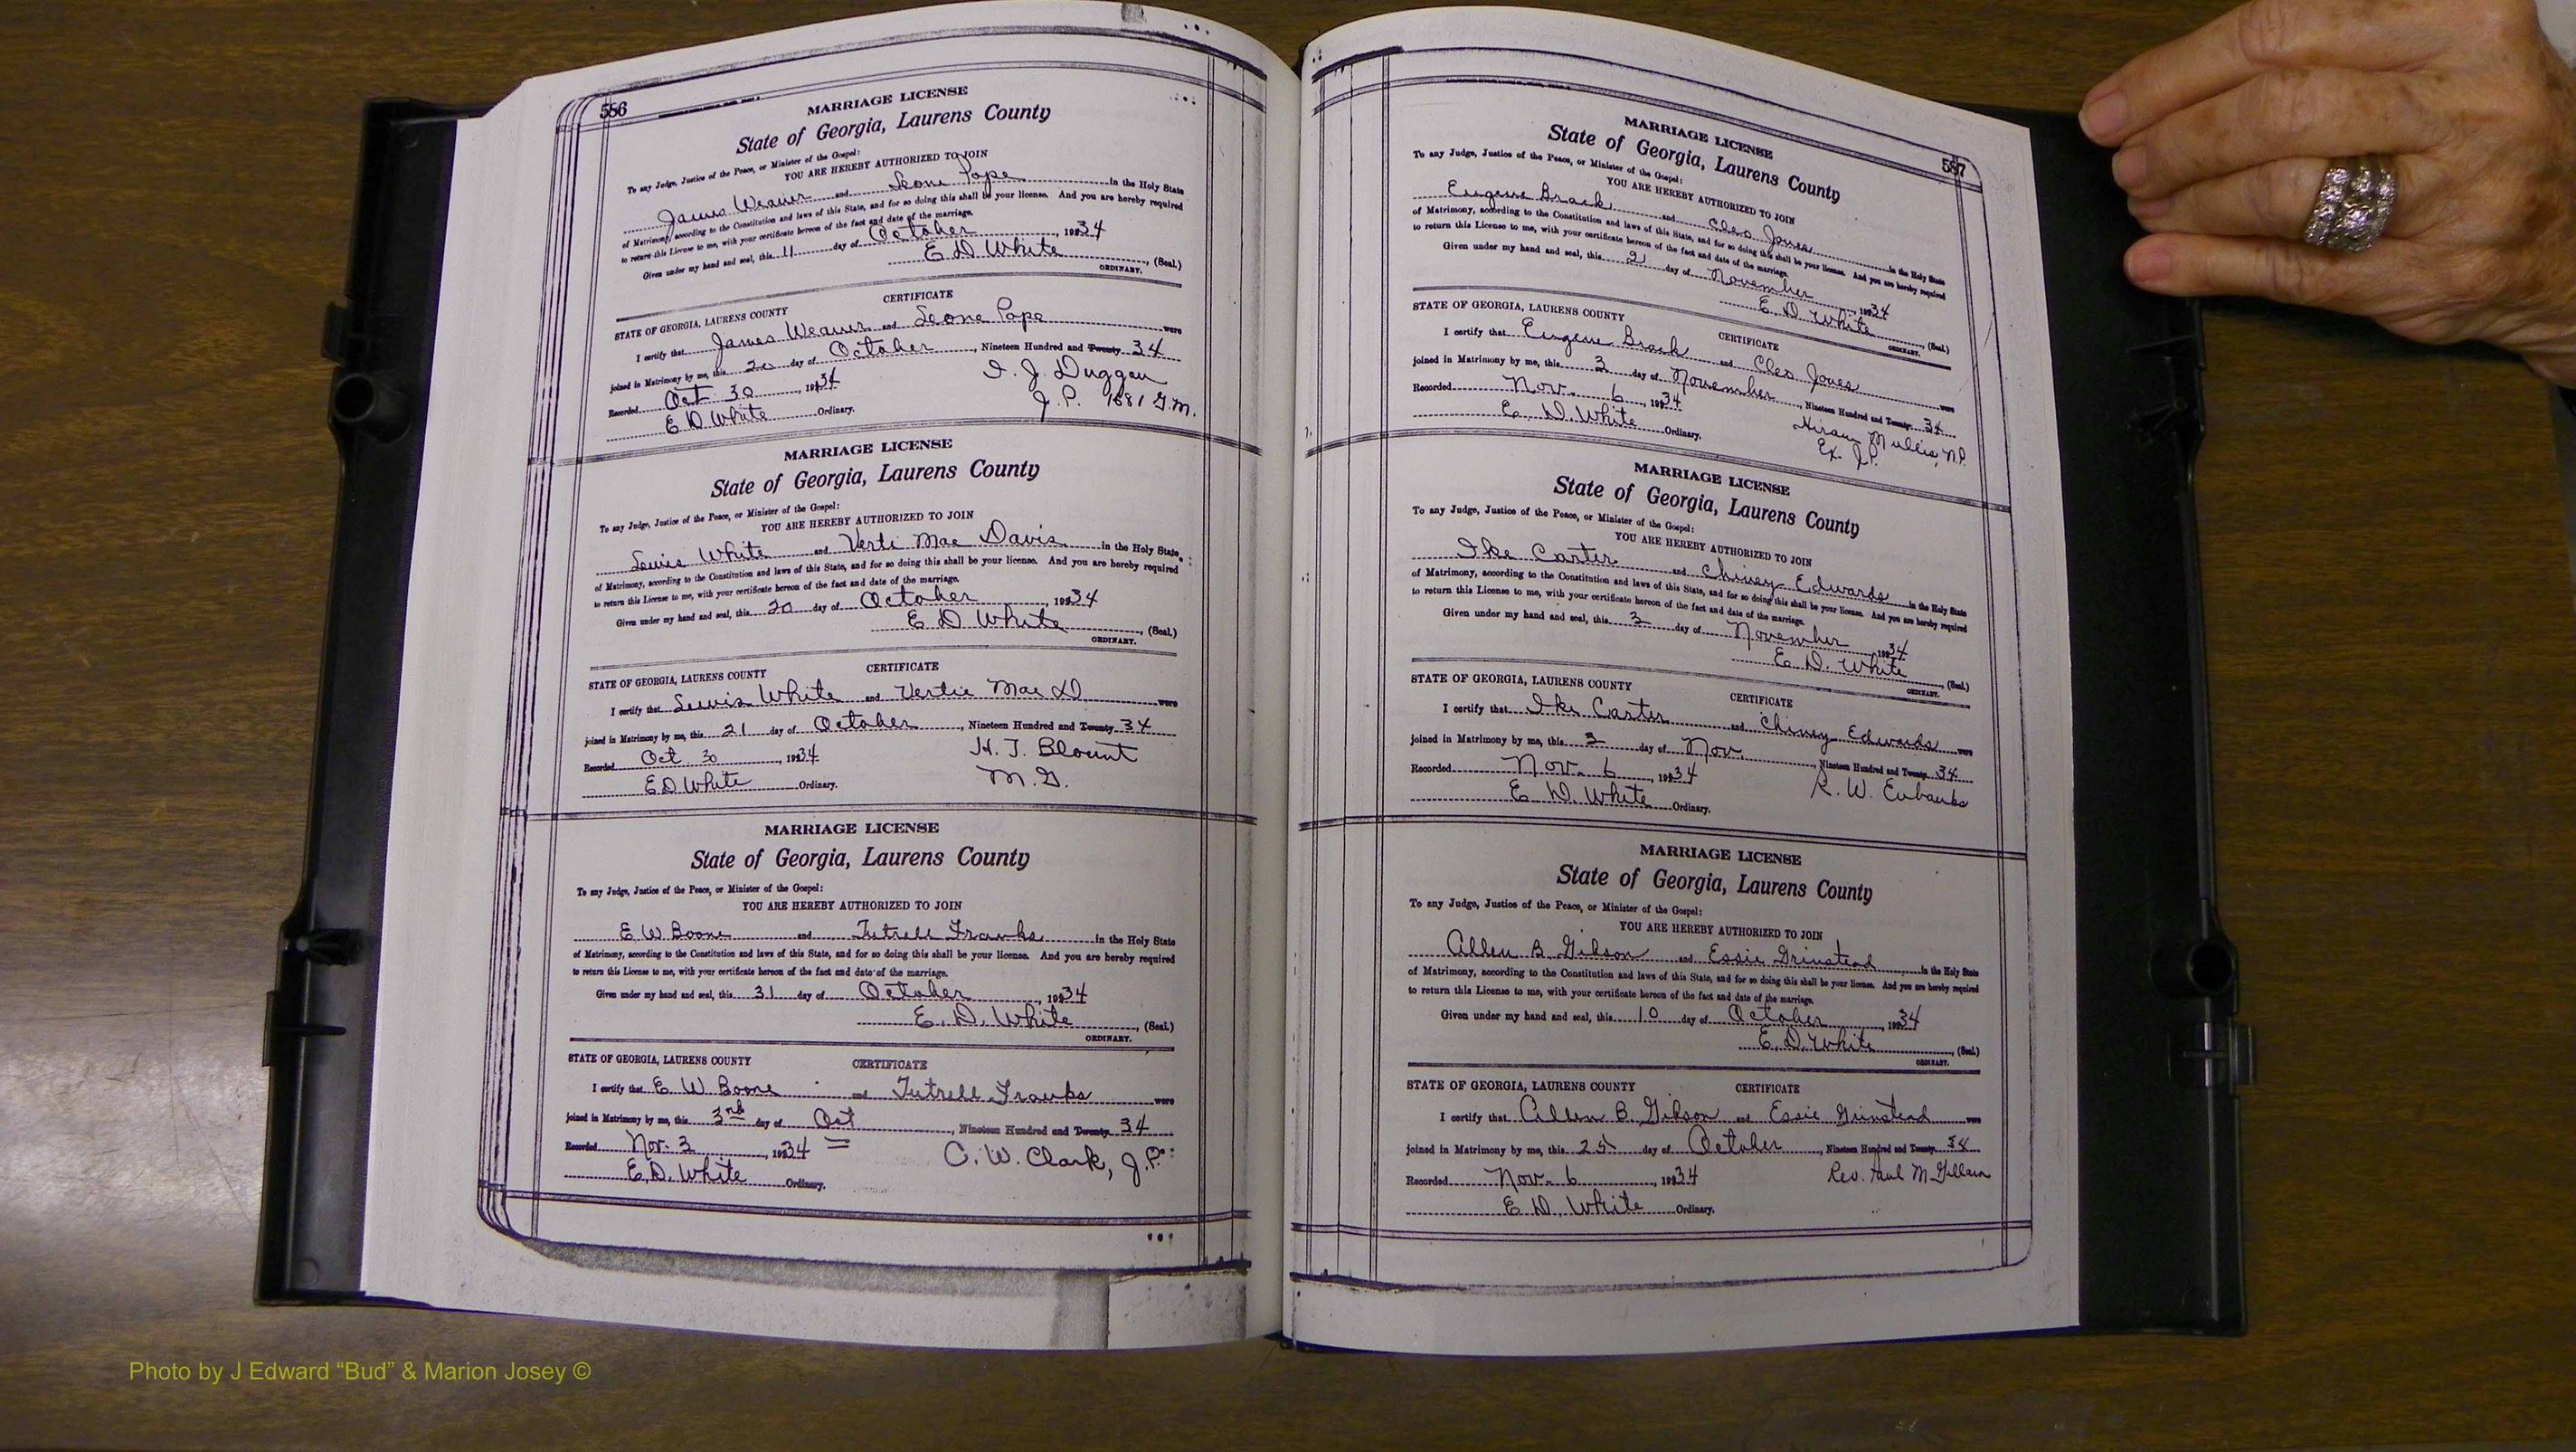 556
MARRIAGE LICENSE
State of Georgia, Laurens County
To any Judge, Justice of the Peace, or Minister of the Gospel:
YOU ARE HEREBY AUTHORIZED TO JOIN
James Weaver and Leone Pope in the Holy State
of Matrimony, according to the Constitution and laws of this State, and for so doing this shall be your license. And you are hereby required
to return this License to me, with your certificate hereon of the fact and date of the marriage.
Given under my hand and seal, this 11 day of October, 1934
E D White, (Seal.)
ORDINARY.
CERTIFICATE
STATE OF GEORGIA, LAURENS COUNTY
I certify that James Weaver and Leone Pope were
joined in Matrimony by me, this 20 day of October, Nineteen Hundred and Twenty 34
Recorded Oct 30, 1934 I. J. Duggan
E D White Ordinary. J. P. 1681 G.M.
MARRIAGE LICENSE
State of Georgia, Laurens County
To any Judge, Justice of the Peace, or Minister of the Gospel:
YOU ARE HEREBY AUTHORIZED TO JOIN
Lewis White and Verti Mae Davis in the Holy State
of Matrimony, according to the Constitution and laws of this State, and for so doing this shall be your license. And you are hereby required
to return this License to me, with your certificate hereon of the fact and date of the marriage.
Given under my hand and seal, this 20 day of October, 1934
E D White, (Seal.)
ORDINARY.
CERTIFICATE
STATE OF GEORGIA, LAURENS COUNTY
I certify that Lewis White and Vertie Mae D were
joined in Matrimony by me, this 21 day of October, Nineteen Hundred and Twenty 34
Recorded Oct. 30, 1934 H. T. Blount
E D White Ordinary. M. G.
MARRIAGE LICENSE
State of Georgia, Laurens County
To any Judge, Justice of the Peace, or Minister of the Gospel:
YOU ARE HEREBY AUTHORIZED TO JOIN
E W Boone and Tutrell Franks in the Holy State
of Matrimony, according to the Constitution and laws of this State, and for so doing this shall be your license. And you are hereby required
to return this License to me, with your certificate hereon of the fact and date of the marriage.
Given under my hand and seal, this 31 day of October, 1934
E. D. White, (Seal.)
ORDINARY.
STATE OF GEORGIA, LAURENS COUNTY CERTIFICATE
I certify that E W Boone and Tutrell Franks were
joined in Matrimony by me, this 3rd day of Oct, Nineteen Hundred and Twenty 34
Recorded Nov. 3, 1934 C. W. Clark, J. P.
E. D. White Ordinary.
557
MARRIAGE LICENSE
State of Georgia, Laurens County
To any Judge, Justice of the Peace, or Minister of the Gospel:
YOU ARE HEREBY AUTHORIZED TO JOIN
Eugene Brack and Cleo Jones in the Holy State
of Matrimony, according to the Constitution and laws of this State, and for so doing this shall be your license. And you are hereby required
to return this License to me, with your certificate hereon of the fact and date of the marriage.
Given under my hand and seal, this 2 day of November, 1934
E. D. White, (Seal.)
ORDINARY.
STATE OF GEORGIA, LAURENS COUNTY CERTIFICATE
I certify that Eugene Brack and Cleo Jones were
joined in Matrimony by me, this 3 day of November, Nineteen Hundred and Twenty 34
Recorded Nov. 6, 1934 Hiram Mullis, N.P.
E. D. White Ordinary. Ex. J.P.
MARRIAGE LICENSE
State of Georgia, Laurens County
To any Judge, Justice of the Peace, or Minister of the Gospel:
YOU ARE HEREBY AUTHORIZED TO JOIN
Ike Carter and Chiney Edwards in the Holy State
of Matrimony, according to the Constitution and laws of this State, and for so doing this shall be your license. And you are hereby required
to return this License to me, with your certificate hereon of the fact and date of the marriage.
Given under my hand and seal, this 3 day of November, 1934
E. D. White, (Seal.)
ORDINARY.
STATE OF GEORGIA, LAURENS COUNTY CERTIFICATE
I certify that Ike Carter and Chiney Edwards were
joined in Matrimony by me, this 3 day of Nov., Nineteen Hundred and Twenty 34
Recorded Nov. 6, 1934 R. W. Eubanks
E. D. White Ordinary.
MARRIAGE LICENSE
State of Georgia, Laurens County
To any Judge, Justice of the Peace, or Minister of the Gospel:
YOU ARE HEREBY AUTHORIZED TO JOIN
Allen B. Gibson and Essie Grinstead in the Holy State
of Matrimony, according to the Constitution and laws of this State, and for so doing this shall be your license. And you are hereby required
to return this License to me, with your certificate hereon of the fact and date of the marriage.
Given under my hand and seal, this 10 day of October, 1934
E. D. White, (Seal.)
ORDINARY.
STATE OF GEORGIA, LAURENS COUNTY CERTIFICATE
I certify that Allen B. Gibson and Essie Grinstead were
joined in Matrimony by me, this 25 day of October, Nineteen Hundred and Twenty 34
Recorded Nov. 6, 1934 Rev. Paul
E. D. White Ordinary.
Photo by J Edward “Bud” & Marion Josey ©